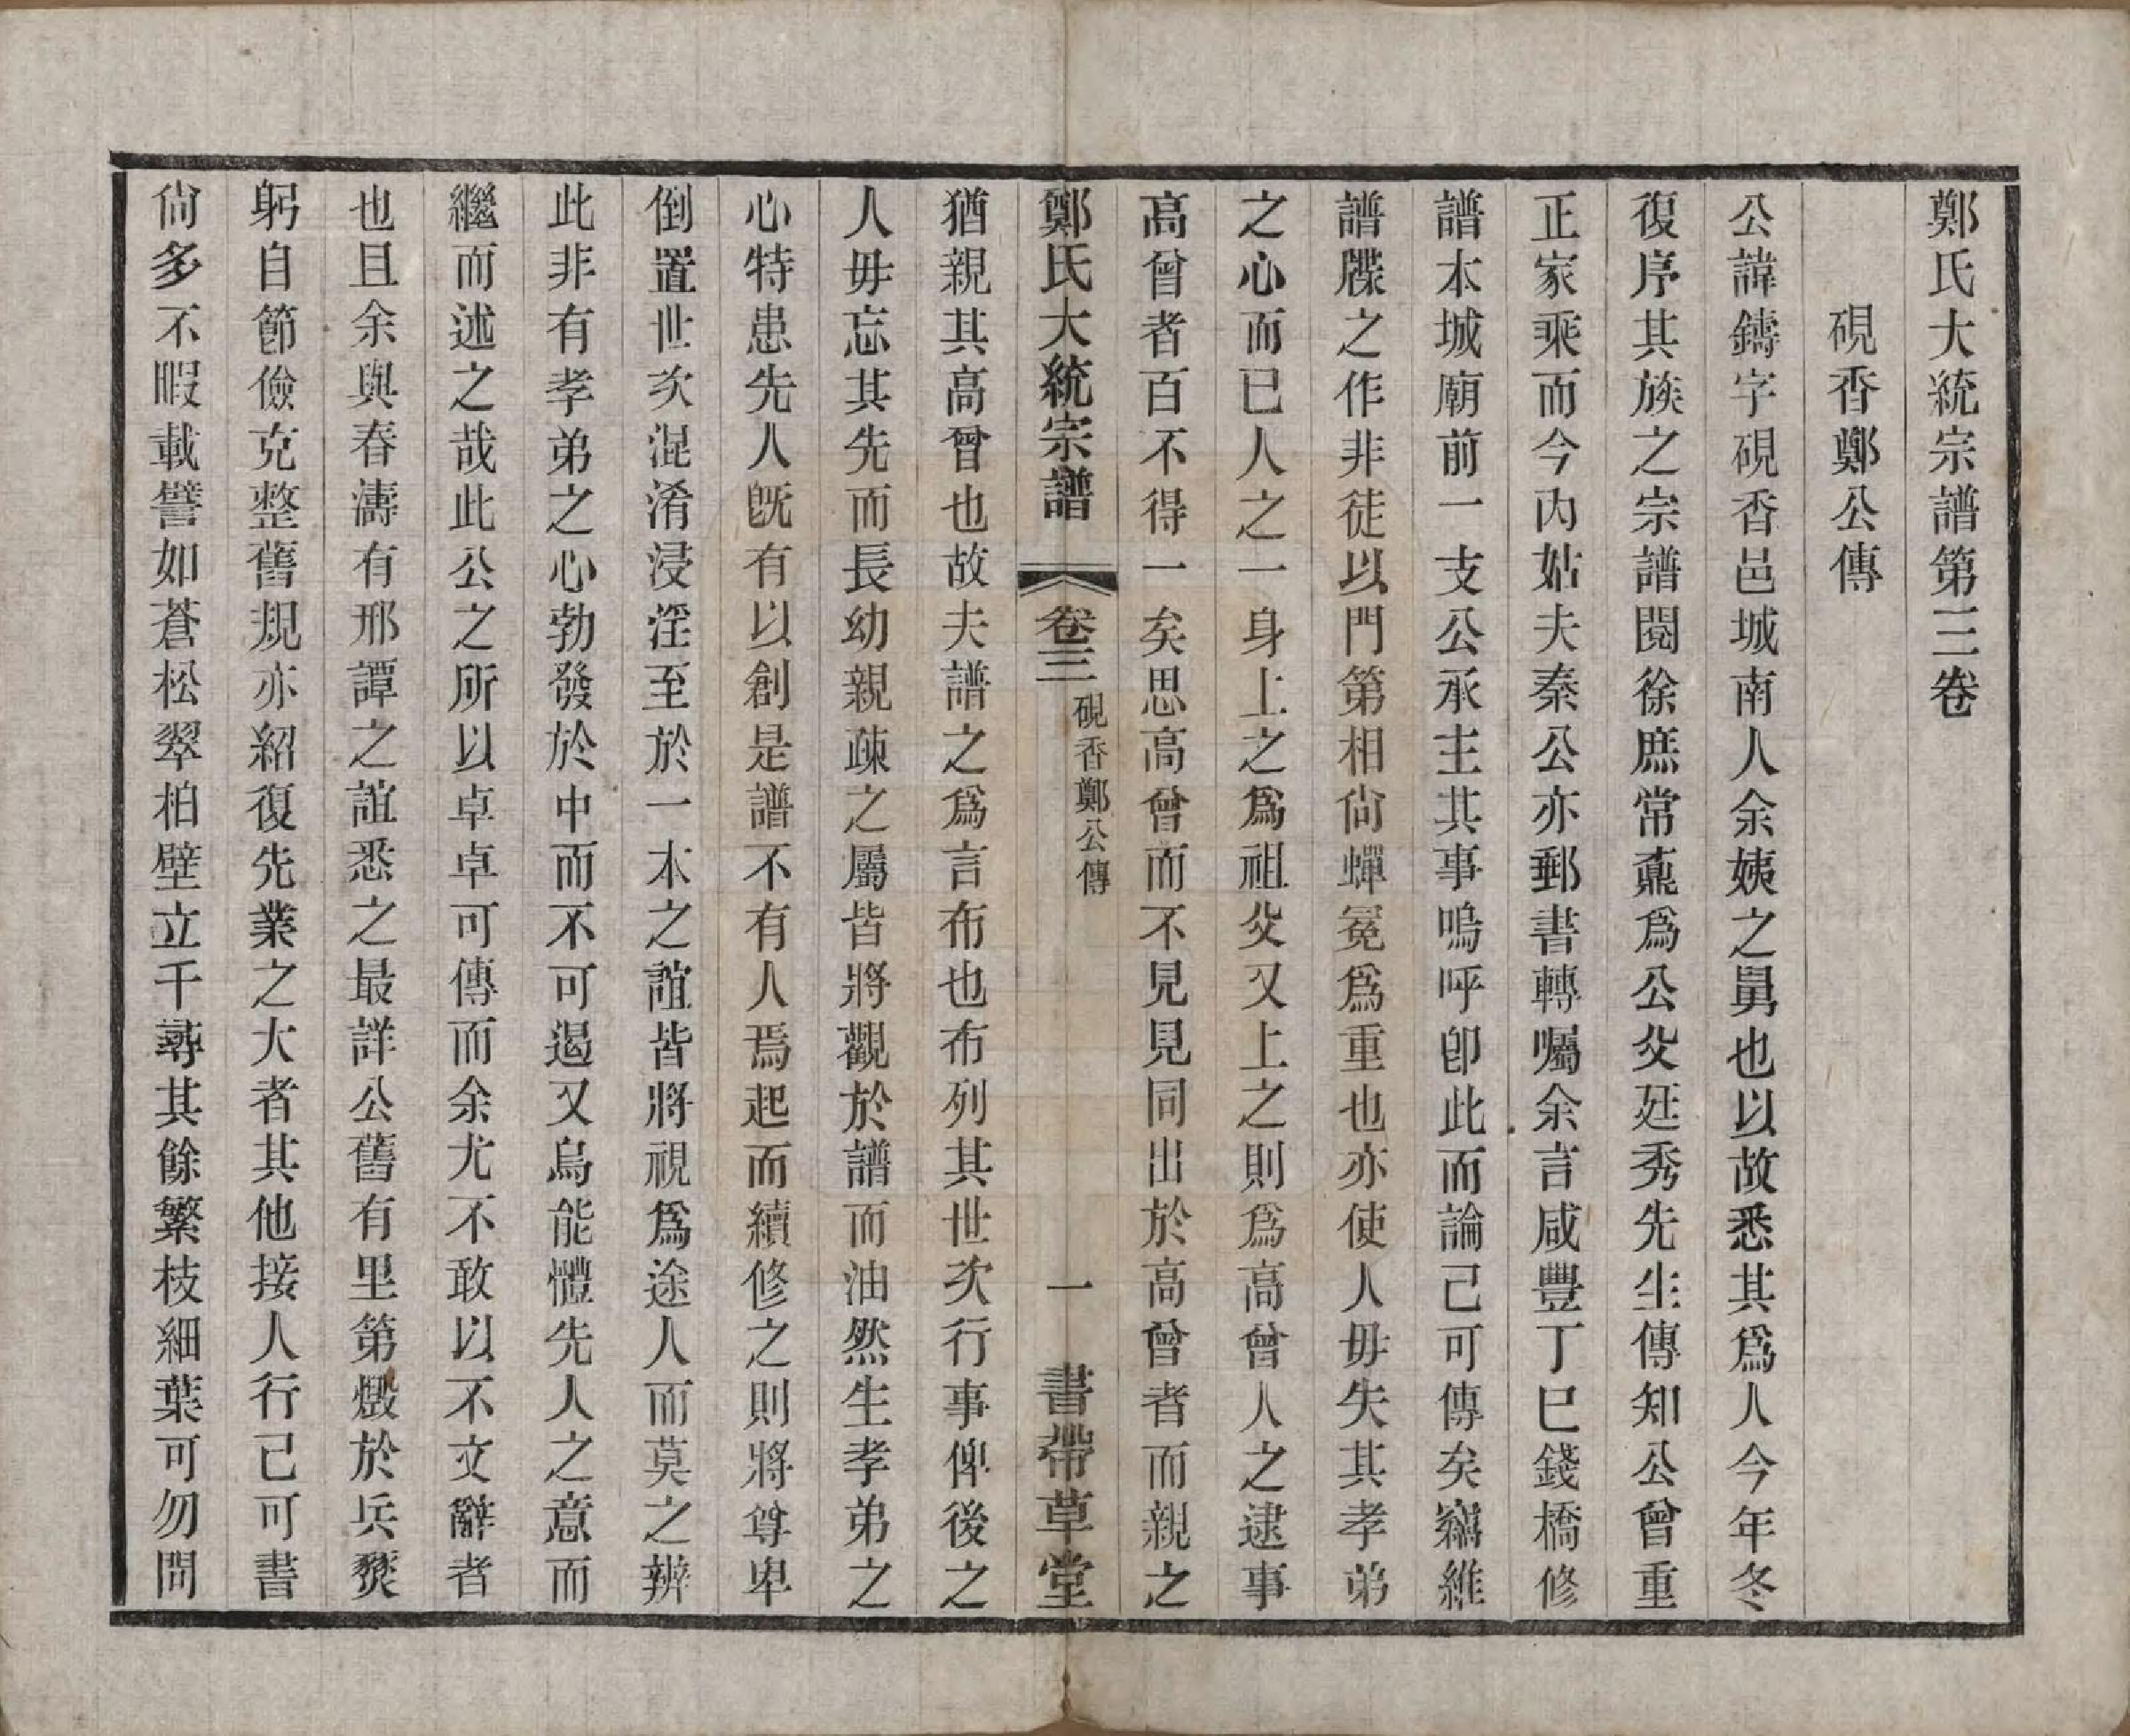 鄭氏大統宗譜第三卷
硯香鄭公傳
公諱鑄字硯香邑城南人余姨之舅也以故悉其爲人今年冬
復序其族之宗譜閱徐庶常鼒爲公父廷秀先生傳知公曾重
正家乘而今內姑夫秦公亦郵書轉囑余言咸豐丁巳錢橋修
譜本城廟前一支公承主其事嗚呼卽此而論已可傳矣竊維
譜牒之作非徒以門第相尙蟬冕爲重也亦使人毋失其孝弟
之心而已人之一身上之爲祖父又上之則爲高曾人之逮事
高曾者百不得一矣思高曾而不見見同出於高曾者而親之
鄭氏大統宗譜 卷三 硯香鄭公傳 一 書帶草堂
猶親其高曾也故夫譜之爲言布也布列其世次行事俾後之
人毋忘其先而長幼親疎之屬皆將觀於譜而油然生孝弟之
心特患先人旣有以創是譜不有人焉起而續修之則將尊卑
倒置世次混淆浸淫至於一本之誼皆將視爲途人而莫之辨
此非有孝弟之心勃發於中而不可遏又烏能體先人之意而
繼而述之哉此公之所以卓卓可傳而余尤不敢以不文辭者
也且余與春濤有邢譚之誼悉之最詳公舊有里第燬於兵燹
躬自節儉克整舊規亦紹復先業之大者其他接人行己可書
尙多不暇載譬如蒼松翠柏壁立千尋其餘繁枝細葉可勿問